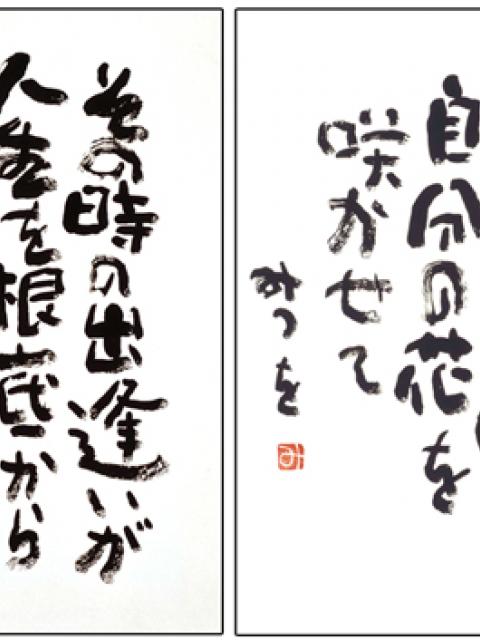 自分の花を
咲かせて
みつを
み
その時の出逢いが
人生を根底から